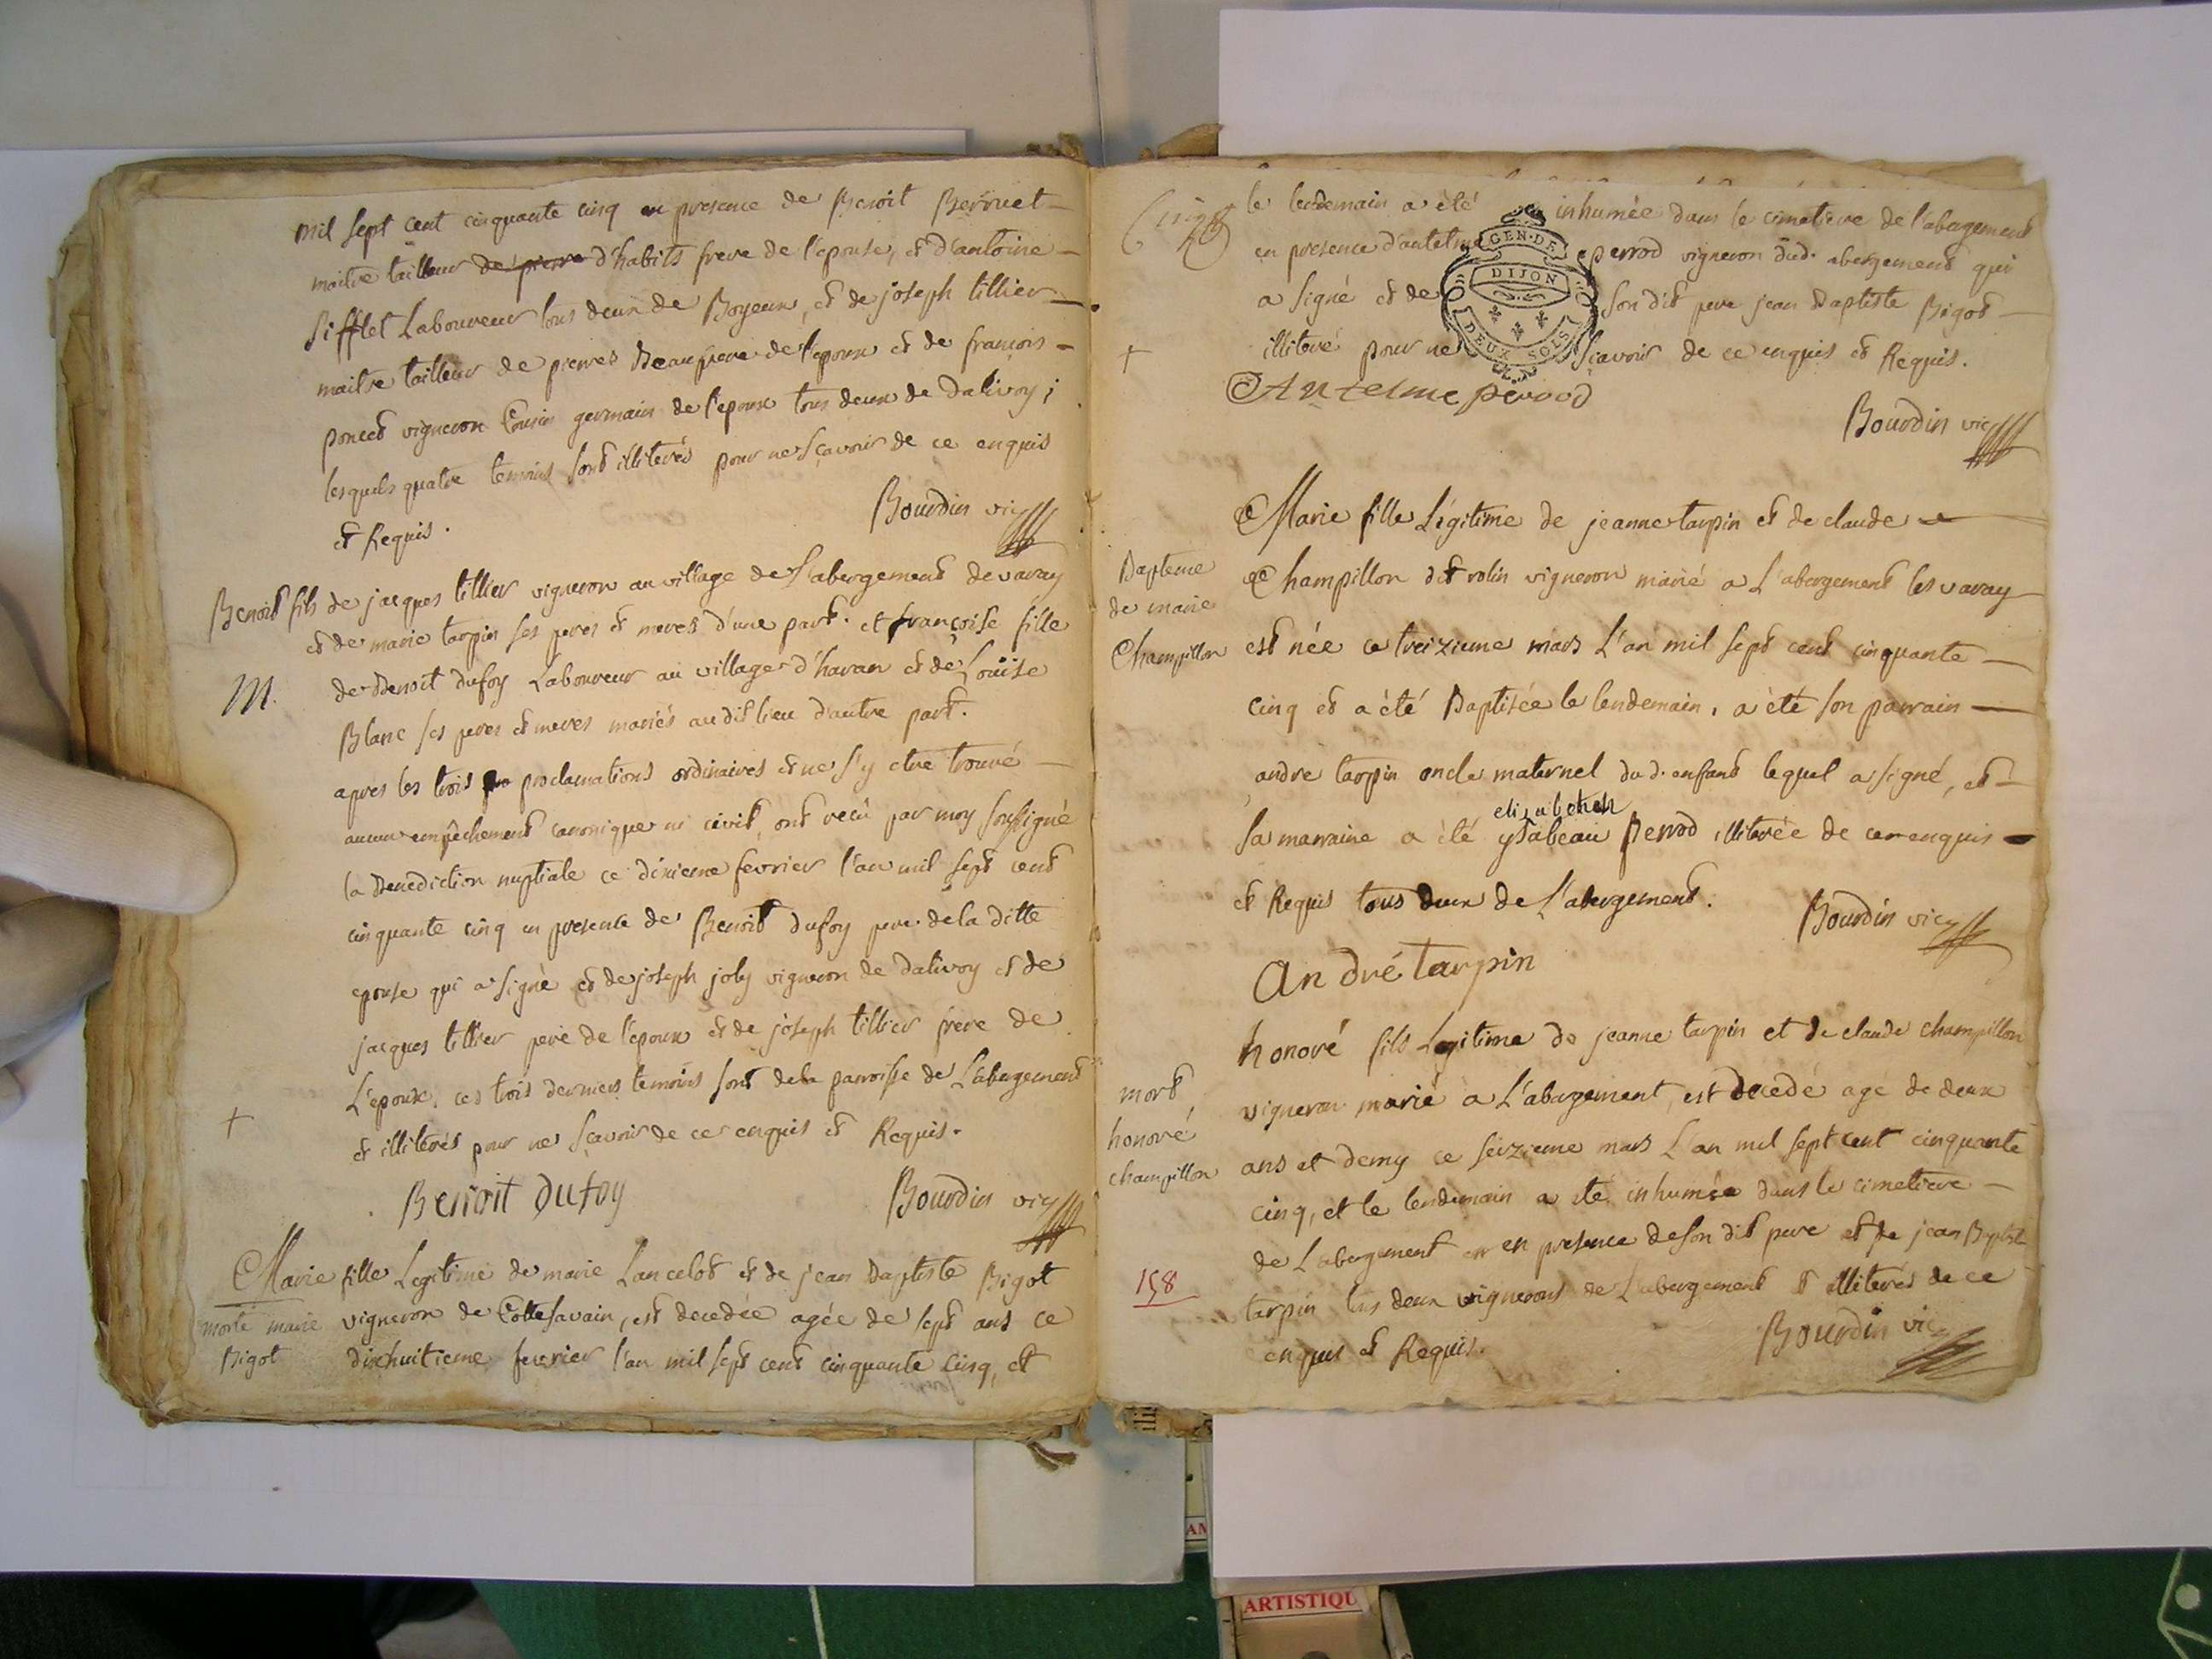 mil sept cent cinquante cinq en presence de Benoit Berruet
maitre tailleur de pierre d'habits frere de l'epouse, et d'antoine
Sifflet Laboureur tous deux de Boyeux, et de joseph tillier
maitre tailleur de pierres Beaufrere de l'epoux et de francois
poncet vigneron Cousin germain de l'epoux tous deux de Dalivoy;
lesquels quatre temoins sont illiterés pour ne sçavoir de ce enquis
et Requis.
Bourdin vic
Benoit fils de jacques tillier vigneron au village de L'abergement de varay
et de marie tarpin ses peres et meres d'une part. et françoise fille
M.
de Benoit dufoy Laboureur au village d'havan et de Louïse
Blanc ses peres et meres mariés au dit lieu d'autre part.
apres les trois proclamations ordinaires et ne s'y etre trouvé
aucun empêchement canonique ni civil, ont recû par moy soussigné
la Benediction nuptiale ce dixieme fevrier l'an mil sept cent
cinquante cinq en presence de Benoit dufoy pere de la ditte
epouse qui a signé et de joseph joly vigneron de Dalivoy et de
jacques tillier pere de l'epoux et de joseph tillier frere de
L'epoux, ces trois derniers temoins sont de la parroisse de L'abergement
+
et illiterés pour ne sçavoir de ce enquis et Requis.
Benoit Dufoy
Bourdin vic
Marie fille Legitime de marie Lancelot et de jean Baptiste Bigot
morte marie
Bigot
vigneron de Cottesavain, est decedée agée de sept ans ce
dixhuitieme fevrier l'an mil sept cent cinquante cinq, et
le lendemain a été inhumée dans le cimetiere de l'abergement
en presence d'antelme perrod vigneron dud. abergement qui
GEN. DE
DIJON
DEUX SOLS
a signé et de son dit pere jean Baptiste Bigot
+
illiteré pour ne sçavoir de ce enquis et Requis.
Antelme perrod
Bourdin vic
Marie fille Légitime de jeanne tarpin et de claude
Bapteme
de marie
Champillon
Champillon dit rolin vigneron marié a L'abergement les varay
est née ce treizieme mars L'an mil sept cent cinquante
cinq et a été Baptisée le lendemain, a été son parrain
andre tarpin oncle maternel dud. enfant lequel a signé, et
elisabeteh
sa marraine a été ysabeau Perrod illiterée de ce enquis
et Requis tous deux de L'abergement.
Bourdin vic
André Tarpin
honoré fils Legitime de jeanne tarpin et de claude champillon
mort
honoré
champillon
vigneron marié a L'abergement, est decedé agé de deux
ans et demy ce seizieme mars L'an mil sept cent cinquante
cinq, et le lendemain a été inhumée dans le cimetiere
de L'abergement en presence de son dit pere et de jean Baptiste
158
tarpin tous deux vignerons de L'abergement et illiterés de ce
enquis et Requis.
Bourdin vic
ARTISTIQU